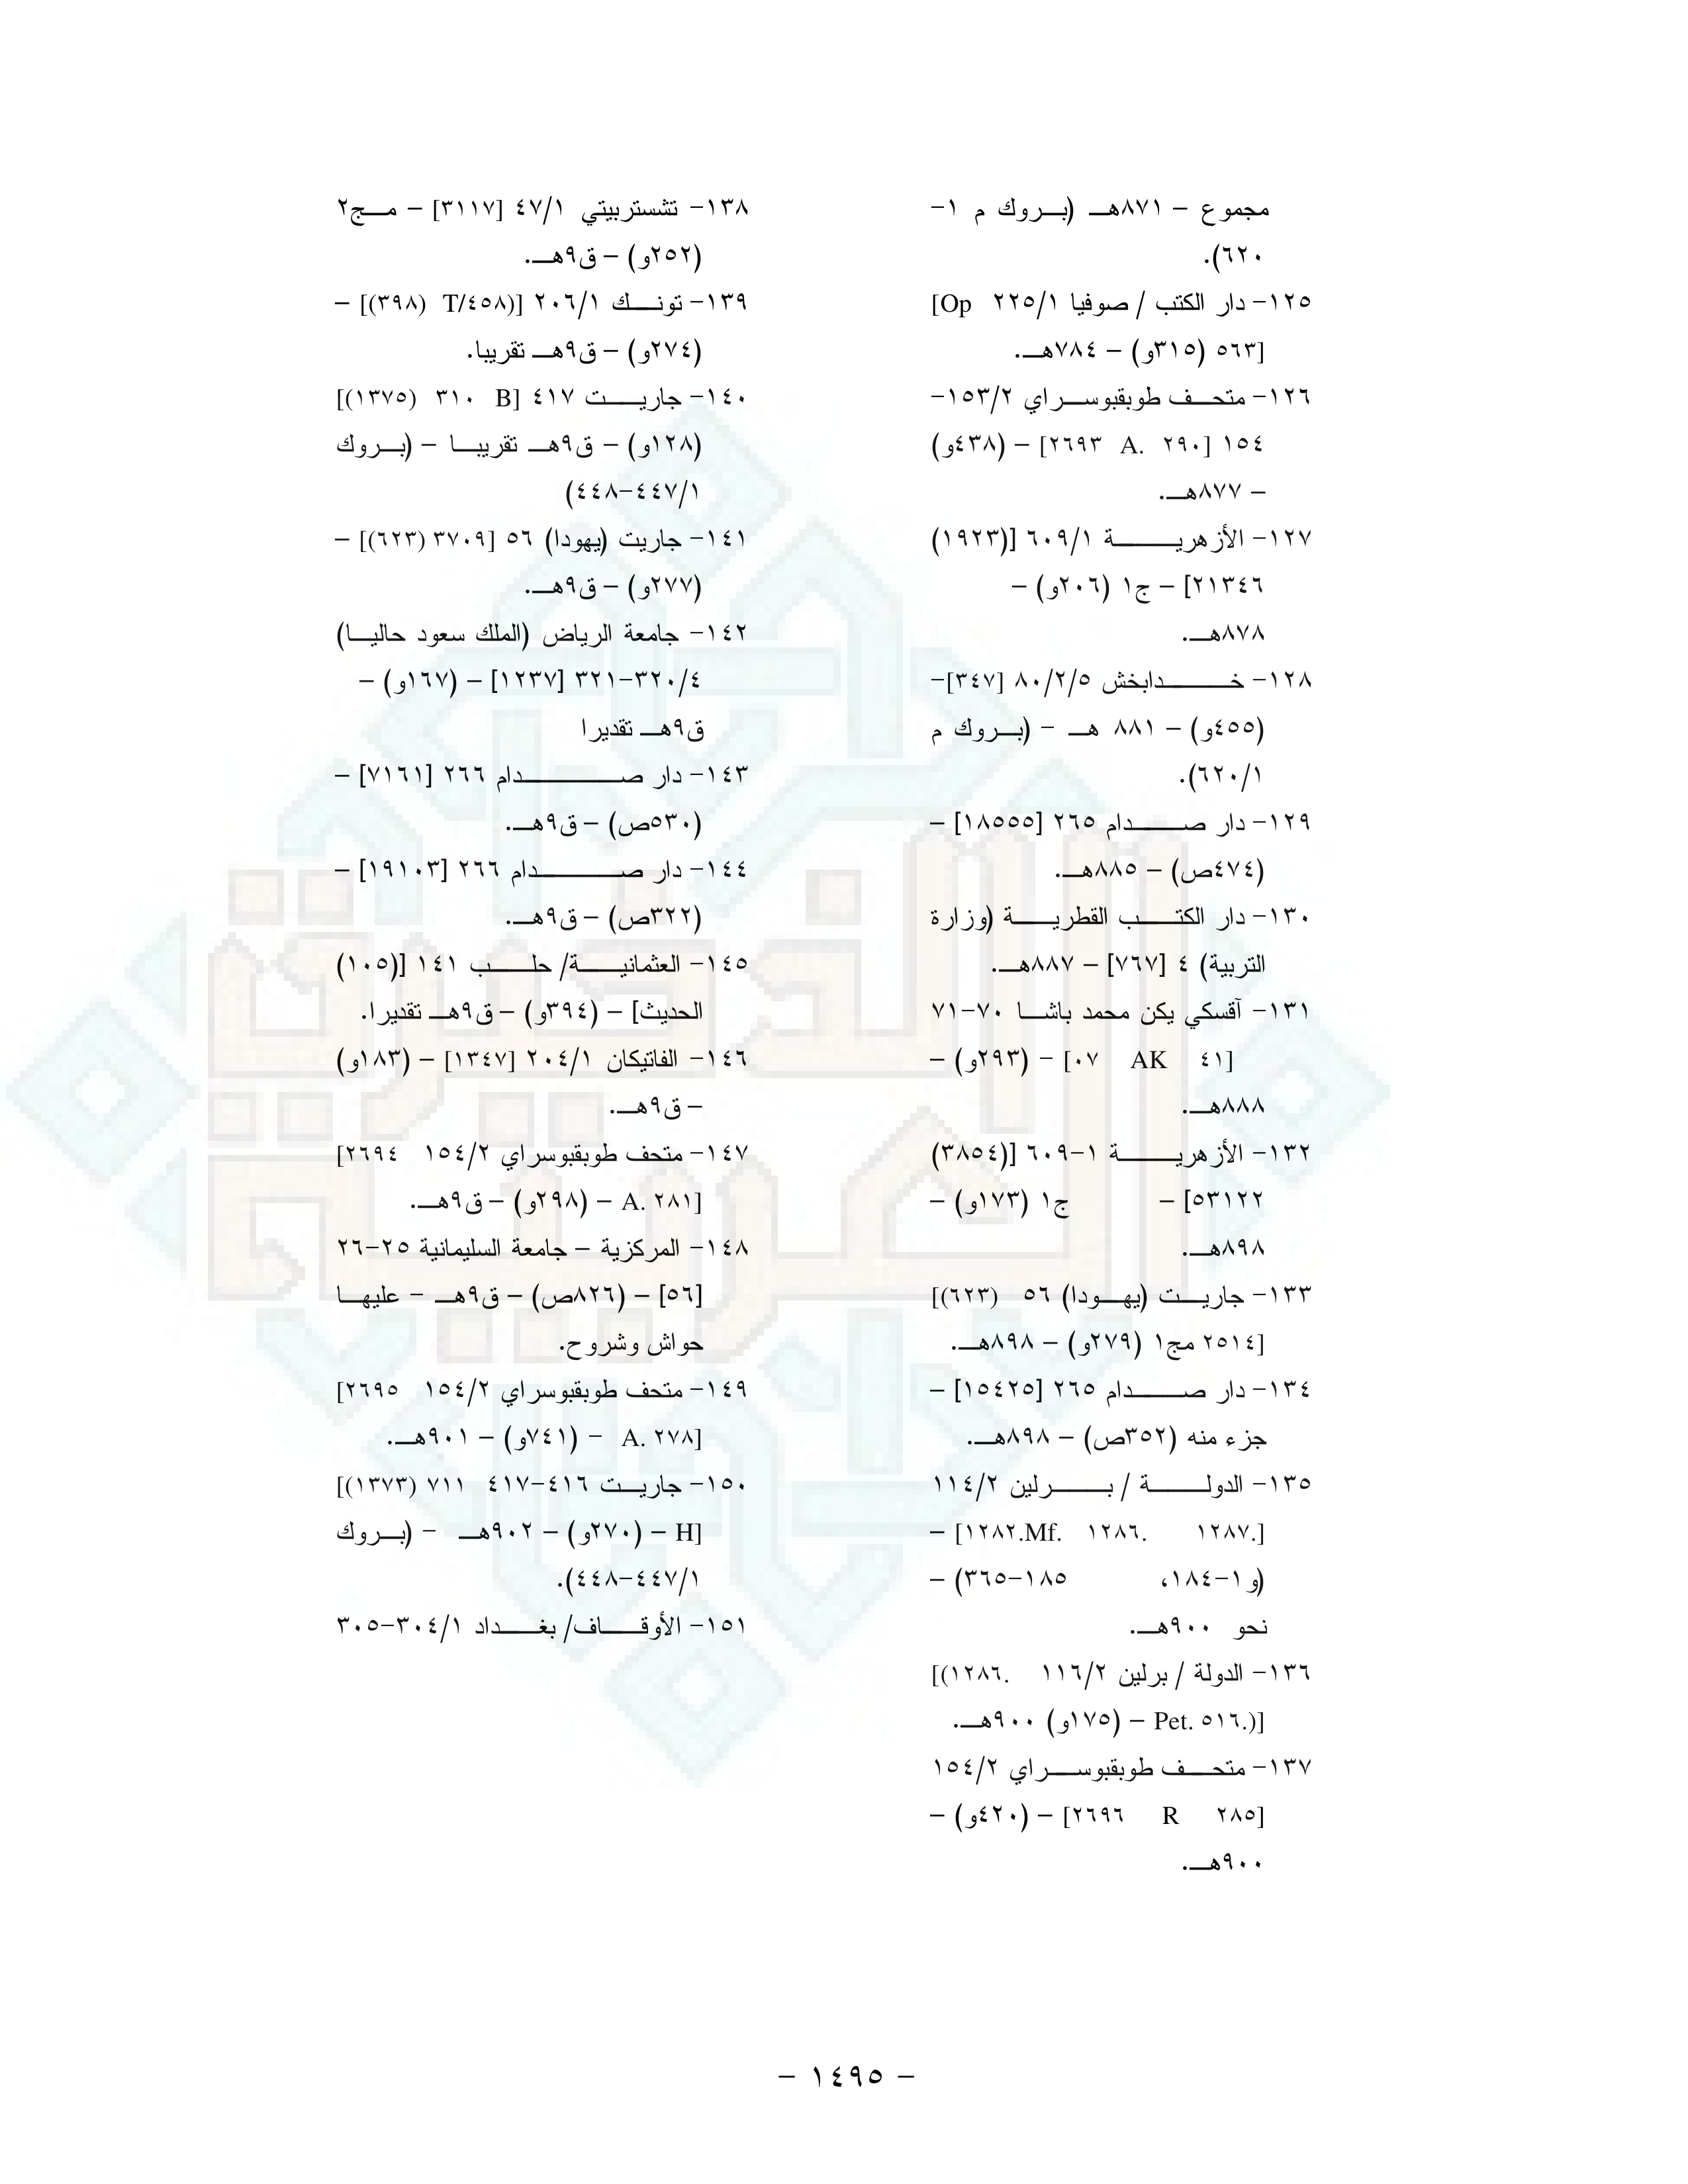 مجموع – ٨٧١هـ (بروك م ١-
٦٢٠).
١٢٥- دار الكتب / صوفيا ٢٢٥/١ [Op
٥٦٣] (٣١٥و) – ٧٨٤هـ.
١٢٦- متحف طوبقبوسراي ١٥٣/٢-
١٥٤ [٢٦٩٣ A. ٢٩٠] – (٤٣٨و)
– ٨٧٧هـ.
١٢٧- الأزهرية ٦٠٩/١ [(١٩٢٣)
٢١٣٤٦] – ج١ (٢٠٦و) –
٨٧٨هـ.
١٢٨- خدابخش ٨٠/٢/٥ [٣٤٧]-
(٤٥٥و) – ٨٨١ هـ - (بروك م
٦٢٠/١).
١٢٩- دار صدام ٢٦٥ [١٨٥٥٥] –
(٤٧٤ص) – ٨٨٥هـ.
١٣٠- دار الكتب القطرية (وزارة
التربية) ٤ [٧٦٧] – ٨٨٧هـ.
١٣١- آقسكي يكن محمد باشا ٧٠-٧١
[٠٧ AK ٤١] - (٢٩٣و) –
٨٨٨هـ.
١٣٢- الأزهرية ١-٦٠٩ [(٣٨٥٤)
٥٣١٢٢] – ج١ (١٧٣و) –
٨٩٨هـ.
١٣٣- جاريت (يهودا) ٥٦ [(٦٢٣)
٢٥١٤] مج١ (٢٧٩و) – ٨٩٨هـ.
١٣٤- دار صدام ٢٦٥ [١٥٤٢٥] –
جزء منه (٣٥٢ص) – ٨٩٨هـ.
١٣٥- الدولة / برلين ١١٤/٢
[١٢٨٢.Mf. ١٢٨٦. ١٢٨٧.] –
(و١-١٨٤، ١٨٥-٣٦٥) –
نحو ٩٠٠هـ.
١٣٦- الدولة / برلين ١١٦/٢ [(١٢٨٦.
Pet. ٥١٦.)] – (١٧٥و) ٩٠٠هـ.
١٣٧- متحف طوبقبوسراي ١٥٤/٢
[٢٦٩٦ R ٢٨٥] – (٤٢٠و) –
٩٠٠هـ.
١٣٨- تشستربيتي ٤٧/١ [٣١١٧] – مج٢
(٢٥٢و) – ق٩هـ.
١٣٩- تونك ٢٠٦/١ [(٣٩٨) T/٤٥٨)] –
(٢٧٤و) – ق٩هـ تقريبا.
١٤٠- جاريت ٤١٧ [(١٣٧٥) ٣١٠ B]
(١٢٨و) – ق٩هـ تقريبا – (بروك
٤٤٧/١-٤٤٨)
١٤١- جاريت (يهودا) ٥٦ [٣٧٠٩ (٦٢٣)] –
(٢٧٧و) – ق٩هـ.
١٤٢- جامعة الرياض (الملك سعود حاليا)
٣٢٠/٤-٣٢١ [١٢٣٧] – (١٦٧و) –
ق٩هـ تقديرا
١٤٣- دار صدام ٢٦٦ [٧١٦١] –
(٥٣٠ص) – ق٩هـ.
١٤٤- دار صدام ٢٦٦ [١٩١٠٣] –
(٣٢٢ص) – ق٩هـ.
١٤٥- العثمانية/ حلب ١٤١ [(١٠٥)
الحديث] – (٣٩٤و) – ق٩هـ تقديرا.
١٤٦- الفاتيكان ٢٠٤/١ [١٣٤٧] – (١٨٣و)
– ق٩هـ.
١٤٧- متحف طوبقبوسراي ١٥٤/٢ [٢٦٩٤
A. ٢٨١] – (٢٩٨و) – ق٩هـ.
١٤٨- المركزية – جامعة السليمانية ٢٥-٢٦
[٥٦] – (٨٢٦ص) – ق٩هـ - عليها
حواش وشروح.
١٤٩- متحف طوبقبوسراي ١٥٤/٢ [٢٦٩٥
A. ٢٧٨] - (٧٤١و) – ٩٠١هـ.
١٥٠- جاريت ٤١٦-٤١٧ [(١٣٧٣) ٧١١
H] – (٢٧٠و) – ٩٠٢هـ - (بروك
٤٤٧/١-٤٤٨).
١٥١- الأوقاف/ بغداد ٣٠٤/١-٣٠٥
- ١٤٩٥ -